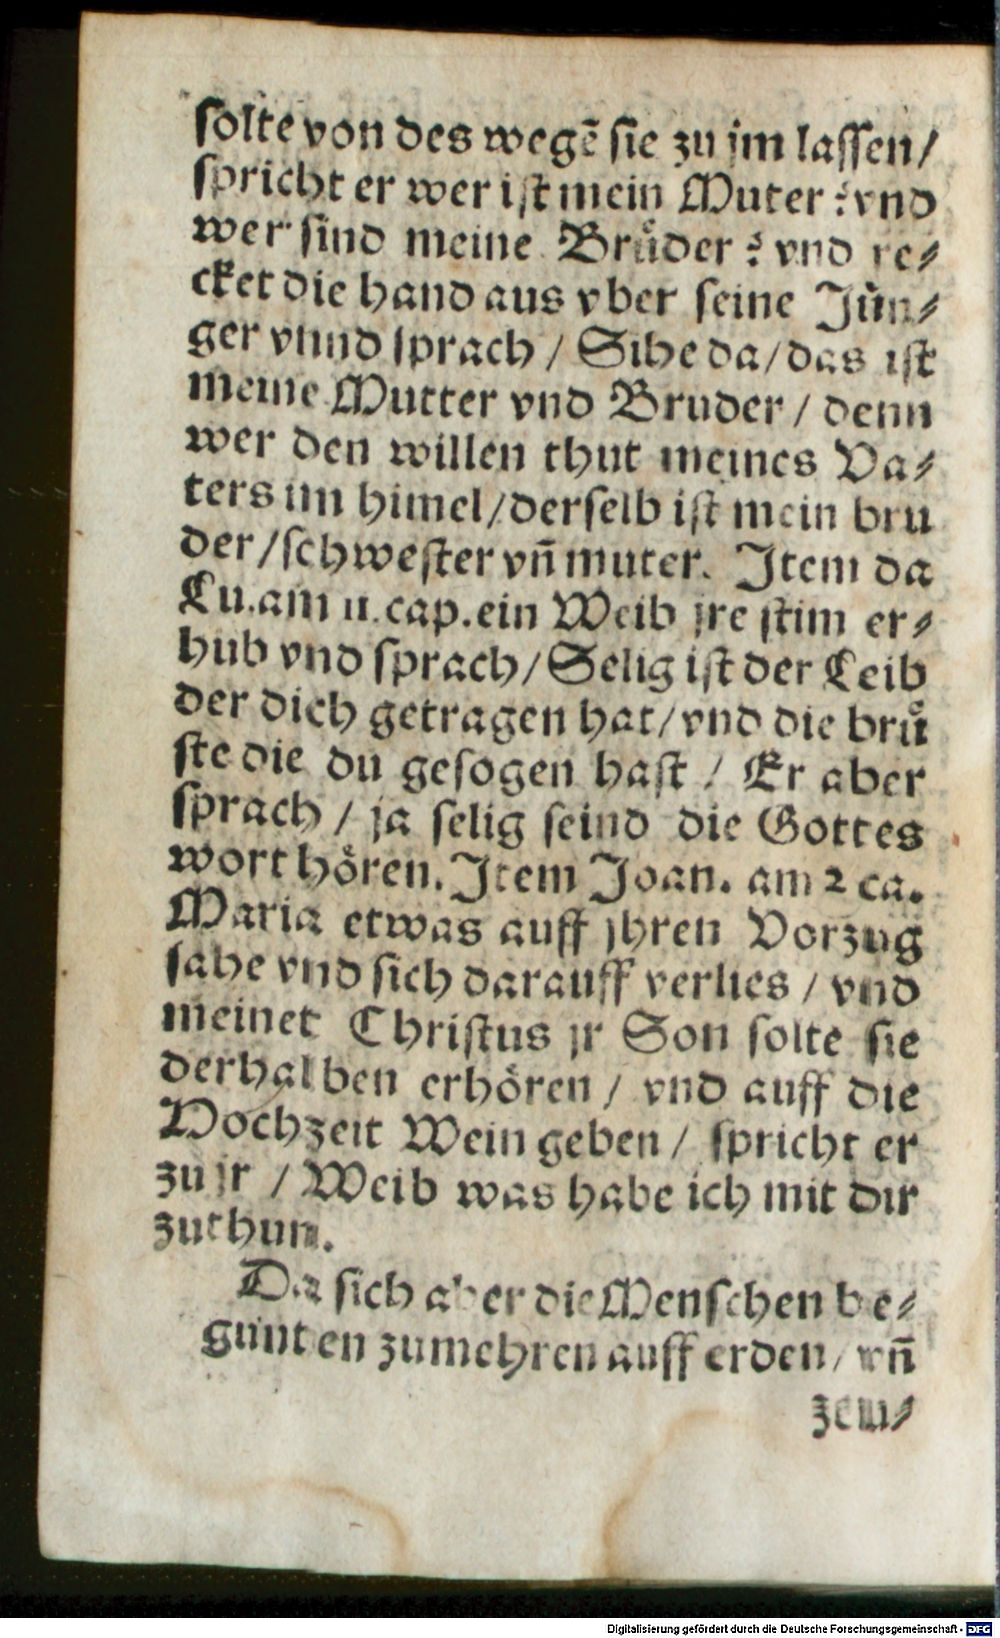 solte von des wegē sie zu jm lassen/
spricht er wer ist mein Muter? vnd
wer sind meine Bruͤder? vnd re⸗
cket die hand aus vber seine Juͤn⸗
ger vnnd sprach / Sihe da/das ist
meine Mutter vnd Bruder / denn
wer den willen thut meines Va⸗
ters im himel/derselb ist mein bru
der/schwester vn̄ muter. Item da
Lu.am 11.cap.ein Weib jre stim er⸗
hub vnd sprach/Selig ist der Leib
der dich getragen hat/vnd die bruͤ
ste die du gesogen hast / Er aber
sprach / ja selig seind die Gottes
wort hoͤren. Item Joan. am 2 ca.
Maria etwas auff jhren Vorzug
sahe vnd sich darauff verlies / vnd
meinet Christus jr Son solte sie
derhalben erhoͤren / vnd auff die
Hochzeit Wein geben / spricht er
zu jr / Weib was habe ich mit dir
zuthun.
Da sich aber die Menschen be⸗
gunten zumehren auff erden/ vn̄
zem⸗
Digitalisierung gefördert durch die Deutsche Forschungsgemeinschaft - DFG